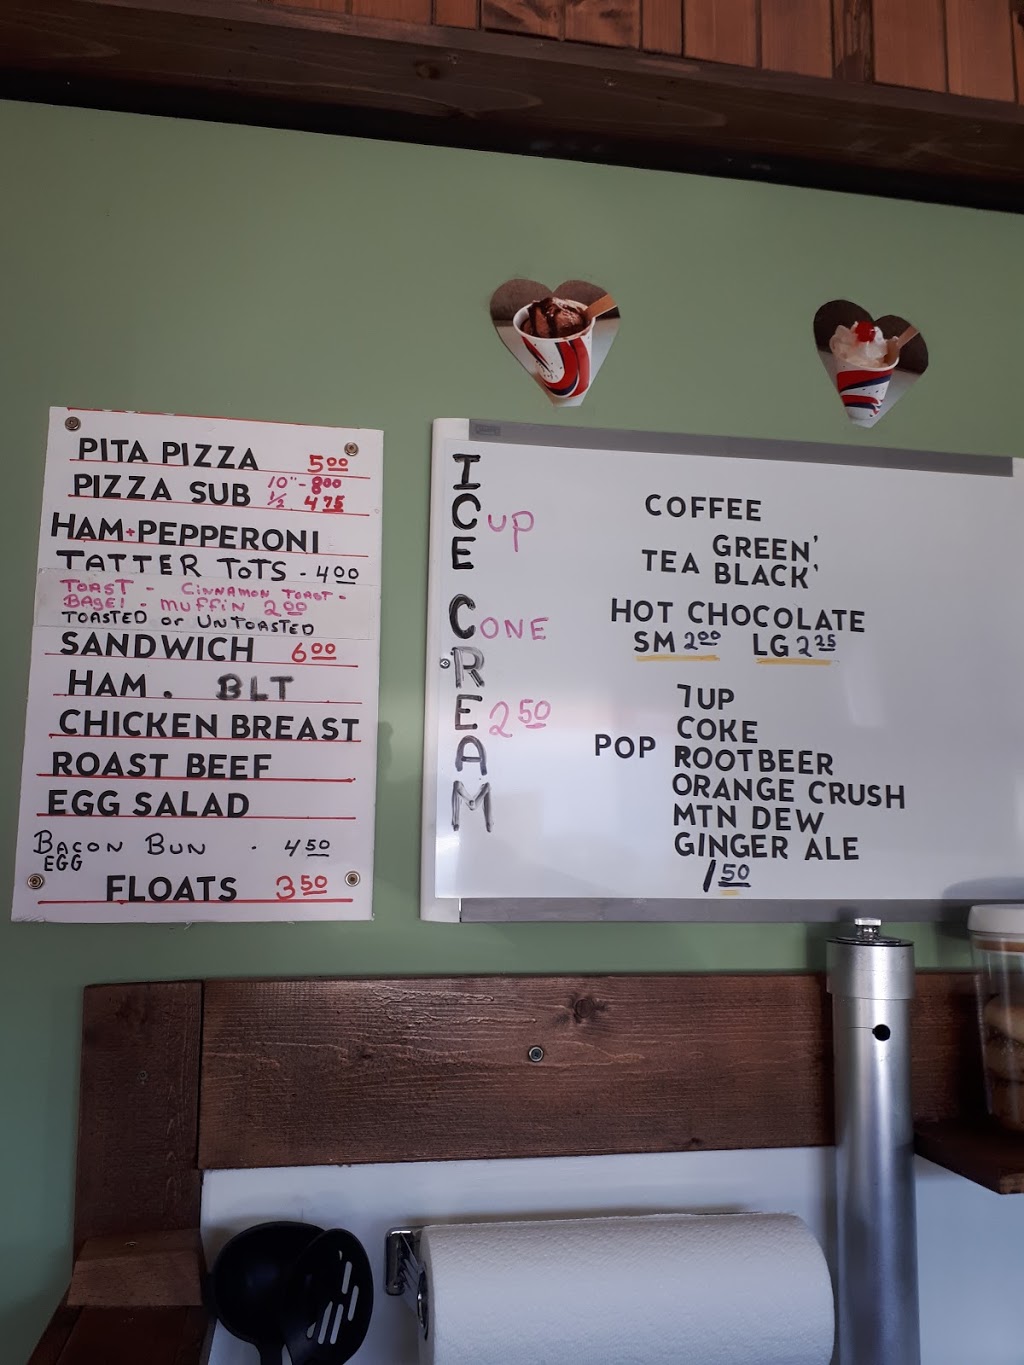 PITA PIZZA 5.00
PIZZA SUB 10" - 8.00
1/2 4.75
HAM + PEPPERONI
TATTER TOTS - 4.00
TOAST - CINNAMON TOAST -
BAGEl - MUFFIN 2.00
TOASTED or UNTOASTED
SANDWICH 6.00
HAM . BLT
CHICKEN BREAST
ROAST BEEF
EGG SALAD
BACON BUN . 4.50
EGG
FLOATS 3.50
ICE CREAM
CUP
CONE
2.50
COFFEE
TEA GREEN'
BLACK'
HOT CHOCOLATE
SM 2.00 LG 2.25
POP
7UP
COKE
ROOTBEER
ORANGE CRUSH
MTN DEW
GINGER ALE
1.50